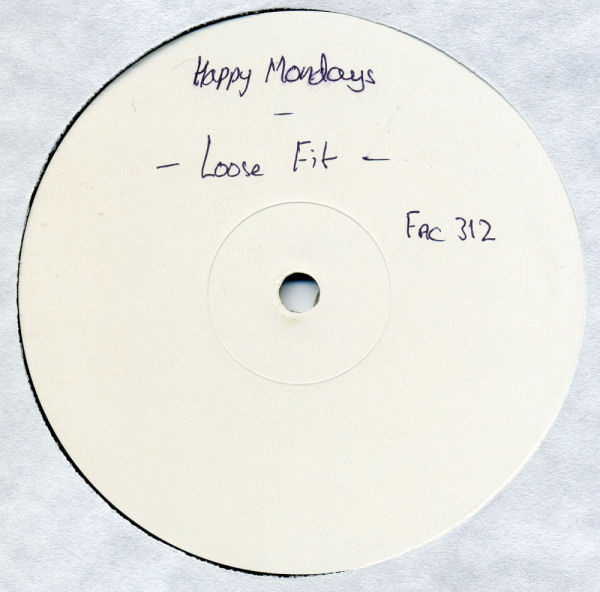 Happy Mondays
-
- Loose Fit -
Fac 312